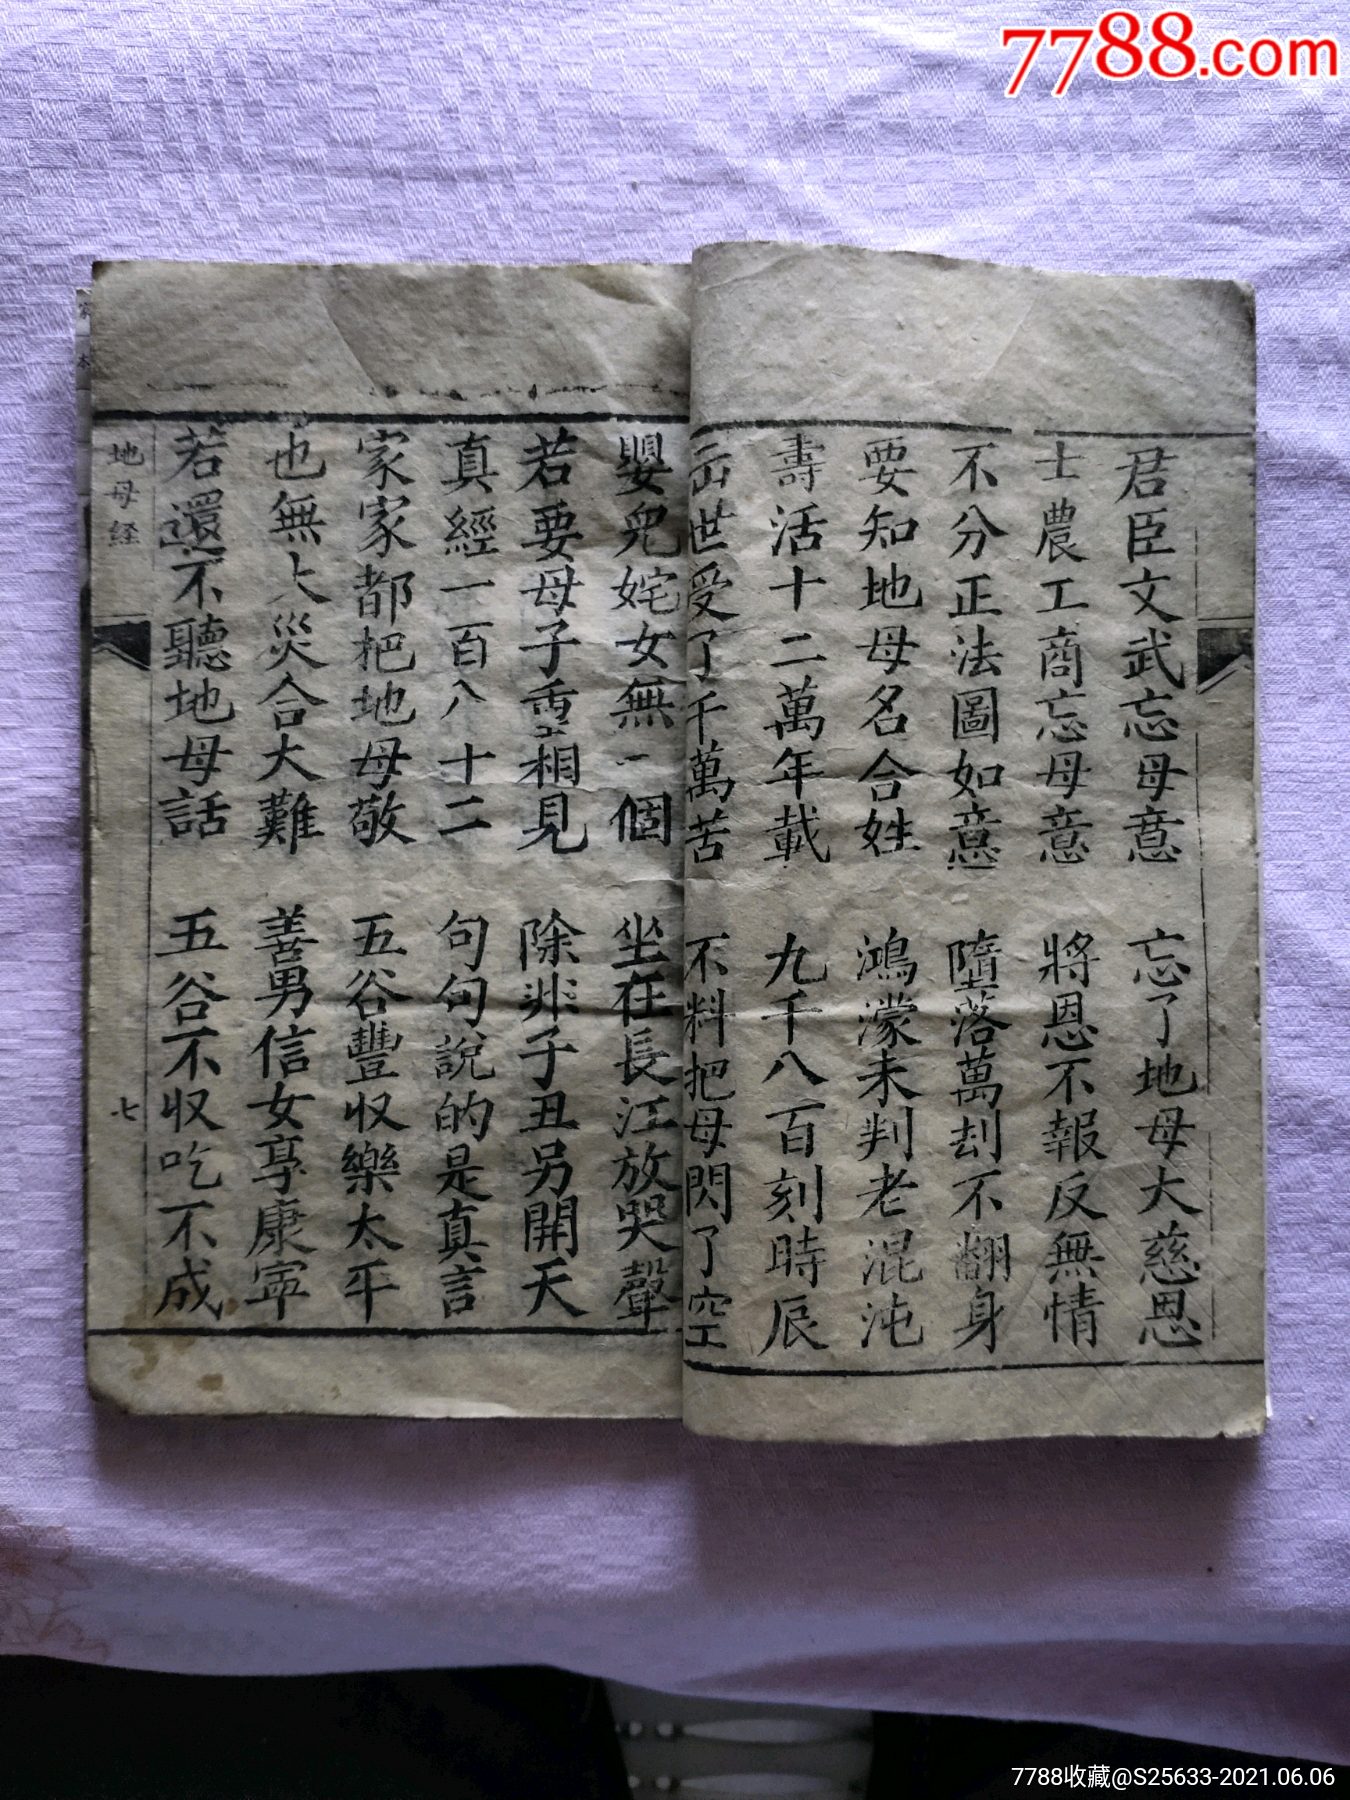 7788.com
君臣文武忘母意 忘了地母大慈恩
士農工商忘母意 將恩不報反無情
不分正法圖如意 墮落萬刦不翻身
要知地母名合姓 鴻濛未判老混沌
壽活十二萬年載 九千八百刻時辰
出世受了千萬苦 不料把母閃了空
嬰兒姹女無一個 坐在長江放哭聲
若要母子重相見 除非子丑另開天
真經一百八十二 句句說的是真言
家家都把地母敬 五谷豐収樂太平
也無大災合大難 善男信女享康寧
若還不聽地母話 五谷不収吃不成
地母经
七
7788收藏@S25633-2021.06.06